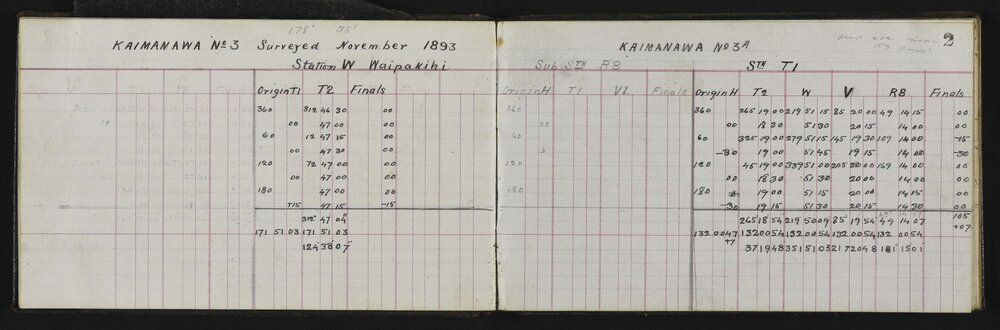 178° 35'
KAIMANAWA No 3 Surveyed November 1893
Station W Waipakihi
Origin T1 T2 Finals
360 312 46 30 00
00 47 00 00
60 12 47 15 00
00 47 30 00
120 72 47 00 00
00 47 00 00
180 47 00 00
+15 47 15 -15
312° 47' 04"
171 51 03 171 51 03
124° 38' 07"
KAIMANAWA No 3A
2
Sub Stn R8
Stn T1
Origin H T1 V1 Finals
360
00
60
120
180
Origin H T2 W V R8 Finals
360 265 19 00 219 51 15 85 20 00 49 14 15 00
00 18 30 51 30 20 15 14 00 00
60 325 19 00 279 51 15 145 19 30 109 14 00 -15
-30 19 00 51 45 19 15 14 00 -30
120 45 19 00 339 51 00 205 20 00 169 14 00 00
00 18 30 51 30 20 00 14 00 00
180 19 00 51 15 20 00 14 15 00
-30 19 15 51 30 20 15 14 30 00
265 18 54 219 50 09 85 19 54 49 14 07 105
+07
132 00 47 132 00 54 132 00 54 132 00 54 132 00 54
+7
37 19 48 351 51 03 217 20 48 181 15 01